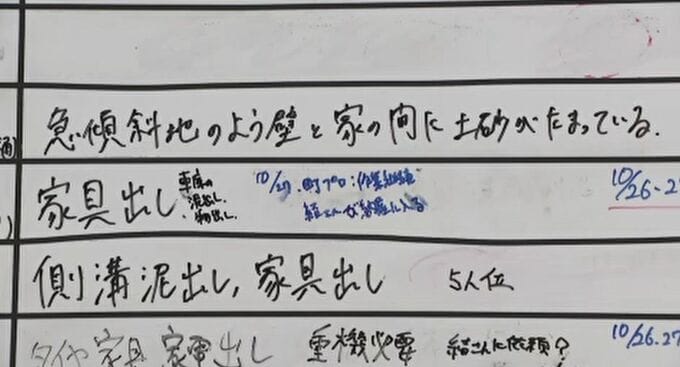 急傾斜地のよう壁と家の間に土砂がたまっている.
家具出し 車庫の泥出し、物出し、 10/27.町プロ: 10/26-2
側溝泥出し,家具出し 5人位
タイヤ 家具 家電出し 重機必要 結さんに依頼? 10/26.27